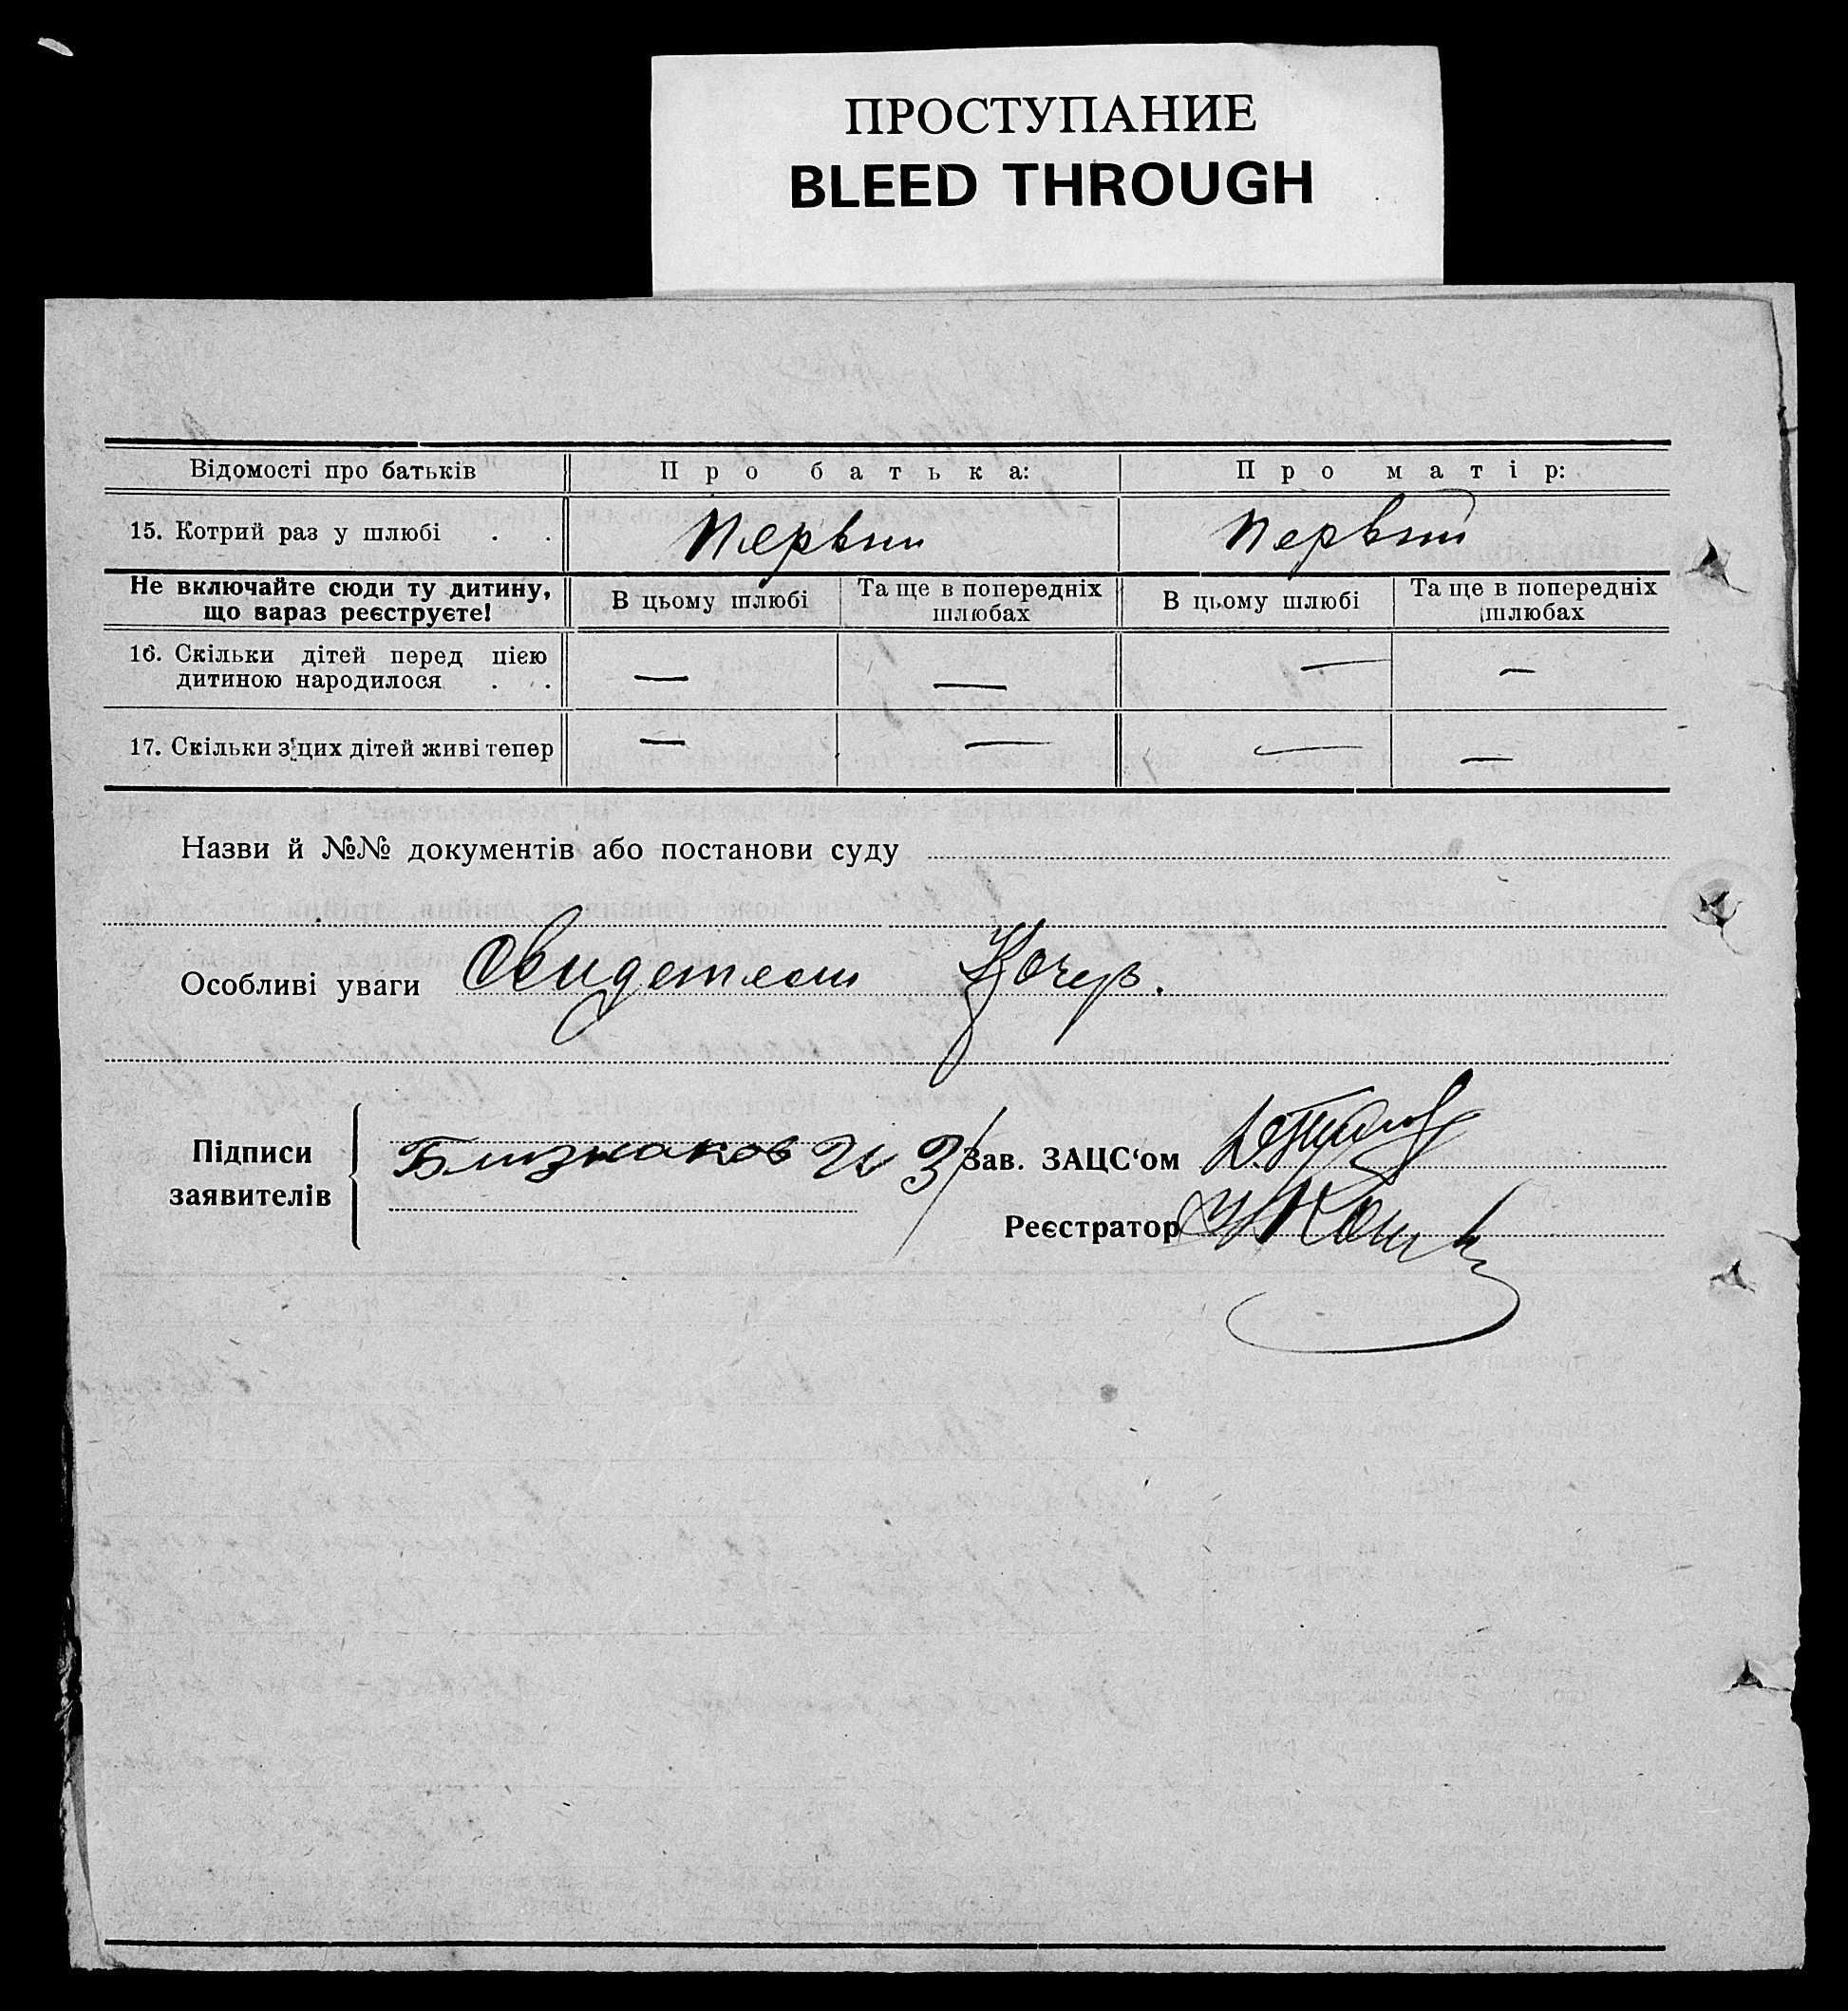 ПРОСТУПАНИЕ
BLEED THROUGH
Відомості про батьків Про батька: Про матір:
15. Котрий раз у шлюбі . . Первый Первый
Не включайте сюди ту дитину, що зараз реєструєте! В цьому шлюбі Та ще в попередніх шлюбах В цьому шлюбі Та ще в попередніх шлюбах
16. Скільки дітей перед цією дитиною народилося . . — — — —
17. Скільки з цих дітей живі тепер — — — —
Назви й №№ документів або постанови суду
Особливі уваги Свидетели Кочер.
Підписи заявителів Близнаков И З
Зав. ЗАЦС‘ом
Реєстратор